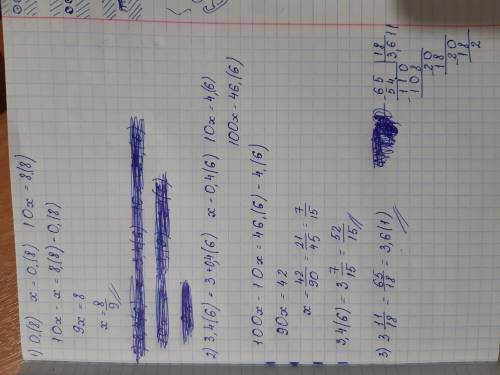 1) 0,(8) x = 0,(8) 10x = 8,(8)
10x - x = 8,(8) - 0,(8)
9x = 8
x = 8/9
2) 3,4(6) = 3 + 0,4(6) x - 0,4(6) 10x = 4,(6)
100x - 46,(6)
100x - 10x = 46,(6) - 4,(6)
90x = 42
x = 42/90 = 21/45 = 7/15
3,4(6) = 3 7/15 = 52/15
3) 3 11/18 = 65/18 = 3,6(1)
-65 | 18
54 | 3,611
-110
108
20
18
20
18
2